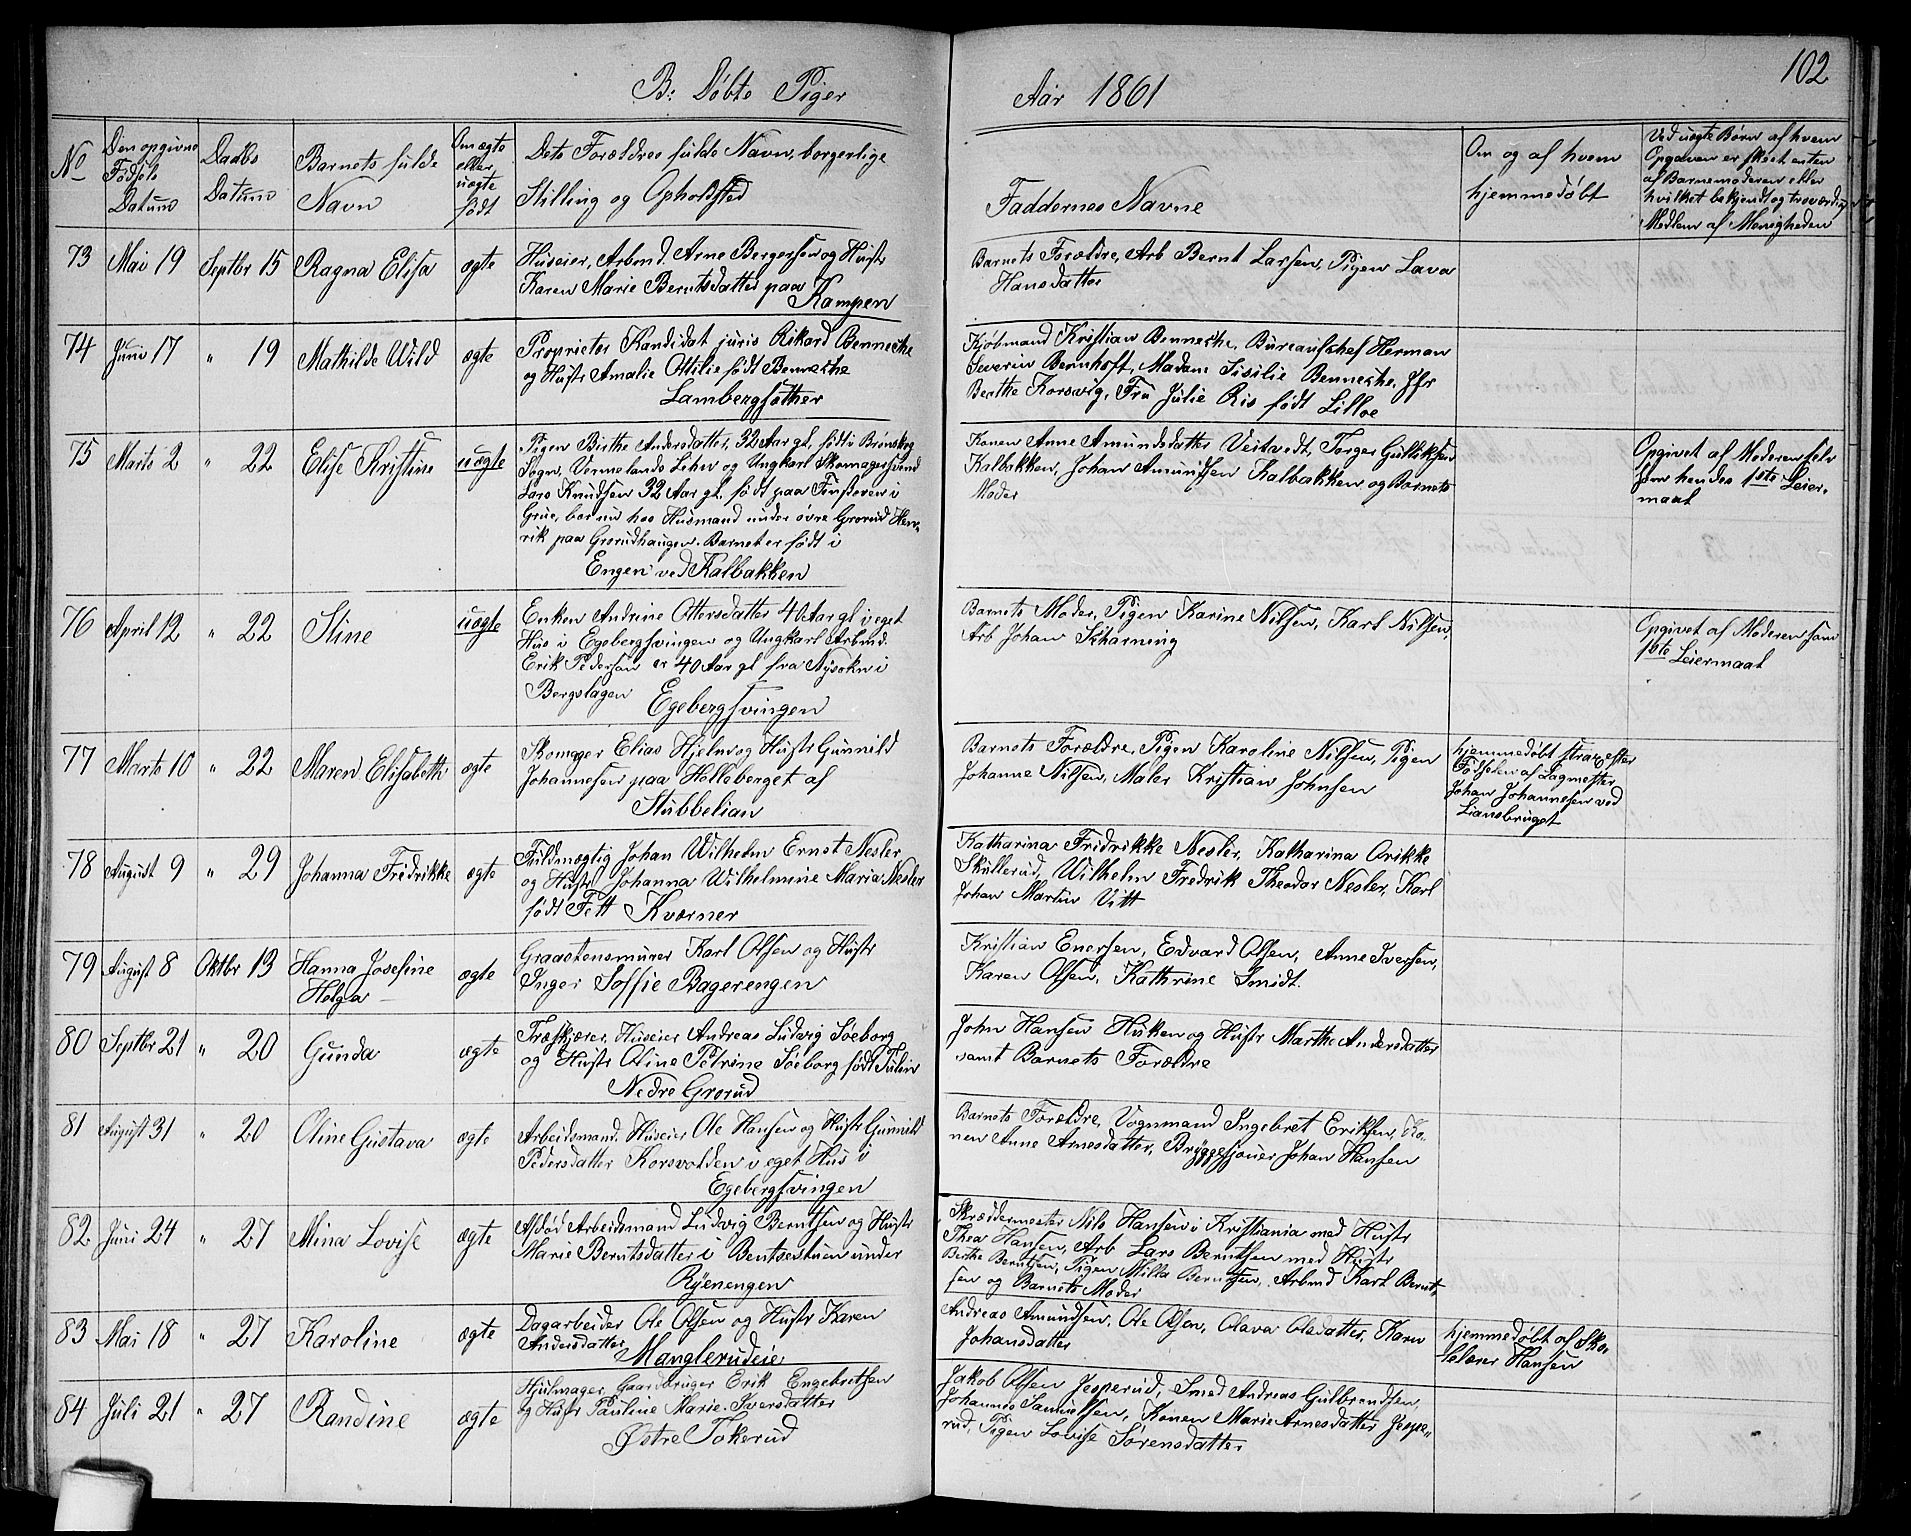 102
B: Døbte Piger
Aar 1861
No
Den opgivne
Fødsels
Datum
Daabs
Datum
Barnets fulde
Navn
Om ægte
eller
uægte
født
Dets Forældres fulde Navn, borgerlige
Stilling og Opholdsted
Faddernes Navne
Om og af hvem
hjemmedøbt
Ved uægte Børn af hvem
Opgaven er skeet enten
af Barnemoderen eller
hvilket bekjendt og troværdig
Medlem af Menigheden
73 Mai 19 Septbr 15 Ragna Elisa ægte
Huseier, Arbmd. Arne Bergersen og Hustr
Karen Marie Berntsdatter paa
Kampen
Barnets Forældre, Arb Bernt Larsen, Pigen Lava
Hansdatter
74 Juni 17 " 19 Mathilde Wild ægte
Proprietær Kandidat juris Rikard Benneche
og Hustr Amalie Ottilie født Benneche
Lambergsæther
Kjøbmand Kristian Benneche, Bureaufchef Herman
Severin Bernhoft, Madam Sisilie Benneche, Jfr
Berthe Korsvig, Fru Julie Ris født Lilloe
75 Marts 2 " 22 Elise Kristine uægte
Pigen Birthe Andersdatter, 32 Aar gl. født i Brunskog
Sogn, Vermelands Lehn og Ungkarl Skomagersvend
Lars Knudsen 32 Aar gl. født paa
Grue, bor nu hos Husmand under øvre Grorud Hen-
rik paa Grorudhaugen. Barnet er født i
Engen ved Kalbakken
Konen Anne Amundsdatter Veitvedt, Torger Gulliksen
Kalbakken, Johan Amundsen Kalbakken og Barnets
Moder
Opgivet af Moderen selv
som hendes 1ste Leier-
maal
76 April 12 " 22 Stine uægte
Enken Andrine Ottersdatter 40 Aar gl i eget
Hus i Egebergsvingen og Ungkarl Arbmd.
Erik Pedersen er 40 Aar gl fra Nysokn i
Bergslagen
Egebergsvingen
Barnets Moder, Pigen Karine Nilsen, Karl Nilsen,
Arb Johan Skharning
Opgivet af Moderen som
1ste Leiermaal
77 Marts 10 " 22 Maren Elisabeth ægte
Skomager Elias Hjelm og Hustr Gunnild
Johannesen paa Holleberget af
Stubbelian
Barnets Forældre, Pigen Karoline Nilsen, Pigen
Johanne Nilsen, Maler Kristian Johnsen
hjemmedøbt strax efter
Fødselen af Sagmester
Johan Johannesen ved
Liansbruget
78 August 9 " 29 Johanna Fredrikke ægte
Fuldmægtig Johan Wilhelm Ernst Nesler
og Hustr Johanna Wilhelmine Maria Nesler
født Fett Kværner
Katharina Fredrikke Nesler, Katharina Arikke
Skullerud, Wilhelm Fredrik Theodor Nesler, Karl
Johan Martin Vitt
79 August 8 Oktbr 13 Hanna Josefine
Helga ægte
Graastensmurer Karl Olsen og Hustr
Inger Soffie Bagerengen
Kristian Enersen, Edvard Olsen, Anne Iversen,
Karen Olsen, Kathrine Smidt.
80 Septbr 21 " 20 Gunda ægte
Træskjærer, Huseier Andreas Ludvig Søeborg
og Hustr Oline Petrine Søeborg født Tulin
Nedre Grorud
John Hansen Huken og Hustr Marthe Andersdatter
samt Barnets Forældre
81 August 31 " 20 Oline Gustava ægte
Arbeidsmand, Huseier Ole Hansen og Hustr Gunnild
Pedersdatter Korsvolden i eget Hus i
Egebergsvingen
Barnets Forældre, Vognmand Ingebret Eriksen, Ko-
nen Anne Arnesdatter, Bryggesjouer Johan Hansen
82 Juni 24 " 27 Mina Lovise ægte
Afdød Arbeidsmand Ludvig Berntsen og Hustr
Marie Berntsdatter i Bentsestuen under
Ryenengen
Skræddermester Nils Hansen i Kristiania med Hustr
Thea Hansen, Arb Lars Berntsen med Hustr
Berthe Berntsen, Pigen Milla Berntsen, Arbmd Karl Bernt-
sen og Barnets Moder
83 Mai 18 " 27 Karoline ægte
Dagarbeider Ole Olsen og Hustr Karen
Andersdatter
Manglerudeie
Andreas Amundsen, Ole Olsen, Olava Olsdatter, Karen
Johansdatter
hjemmedøbt af Sko-
lelærer Hansen
84 Juli 21 " 27 Randine ægte
Hjulmager, Gaardbruger Erik Engebretsen
og Hustr Pauline Marie Iversdatter
Østre Tokerud
Jakob Olsen Jesperud, Smed Andreas Gulbrandsen,
Johannes Samuelsen, Konen Marie Arnesdatter Jespe-
rud, Pigen Lovise Sørensdatter